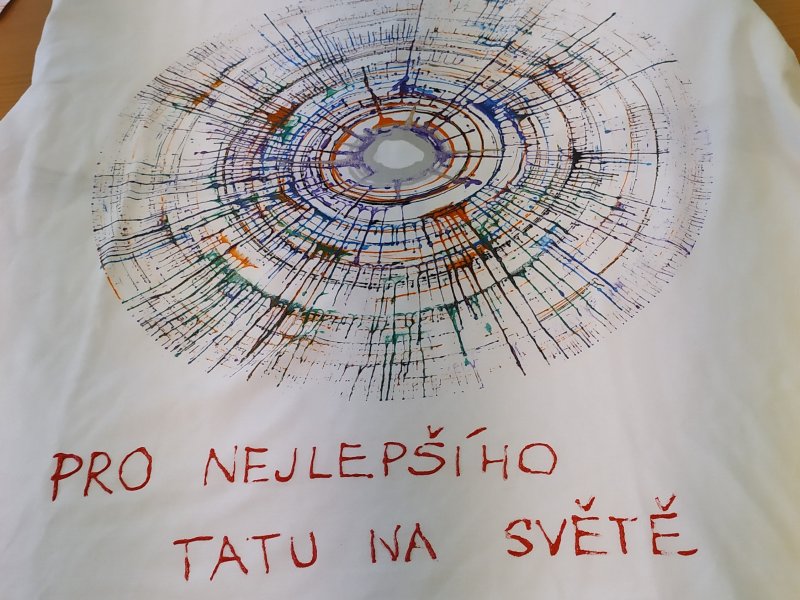 PRO NEJLEPŠÍHO
TATU NA SVĚTĚ